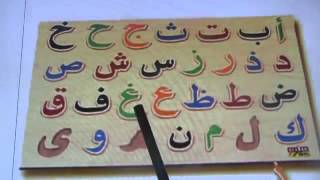 أ ب ت ث ج ح خ
د ذ ر ز س ش ص
ض ط ظ ع غ ف ق
ك ل م ن و ى